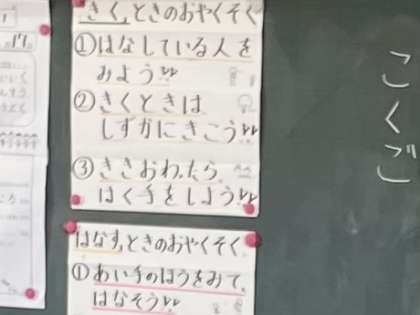 「きく」ときのおやくそく
①はなしている人を
みよう
②きくときは
しずかにきこう
③ききおわったら
はく手をしよう
「はなす」ときのおやくそく
①あい手のほうをみて、
はなそう
こくご